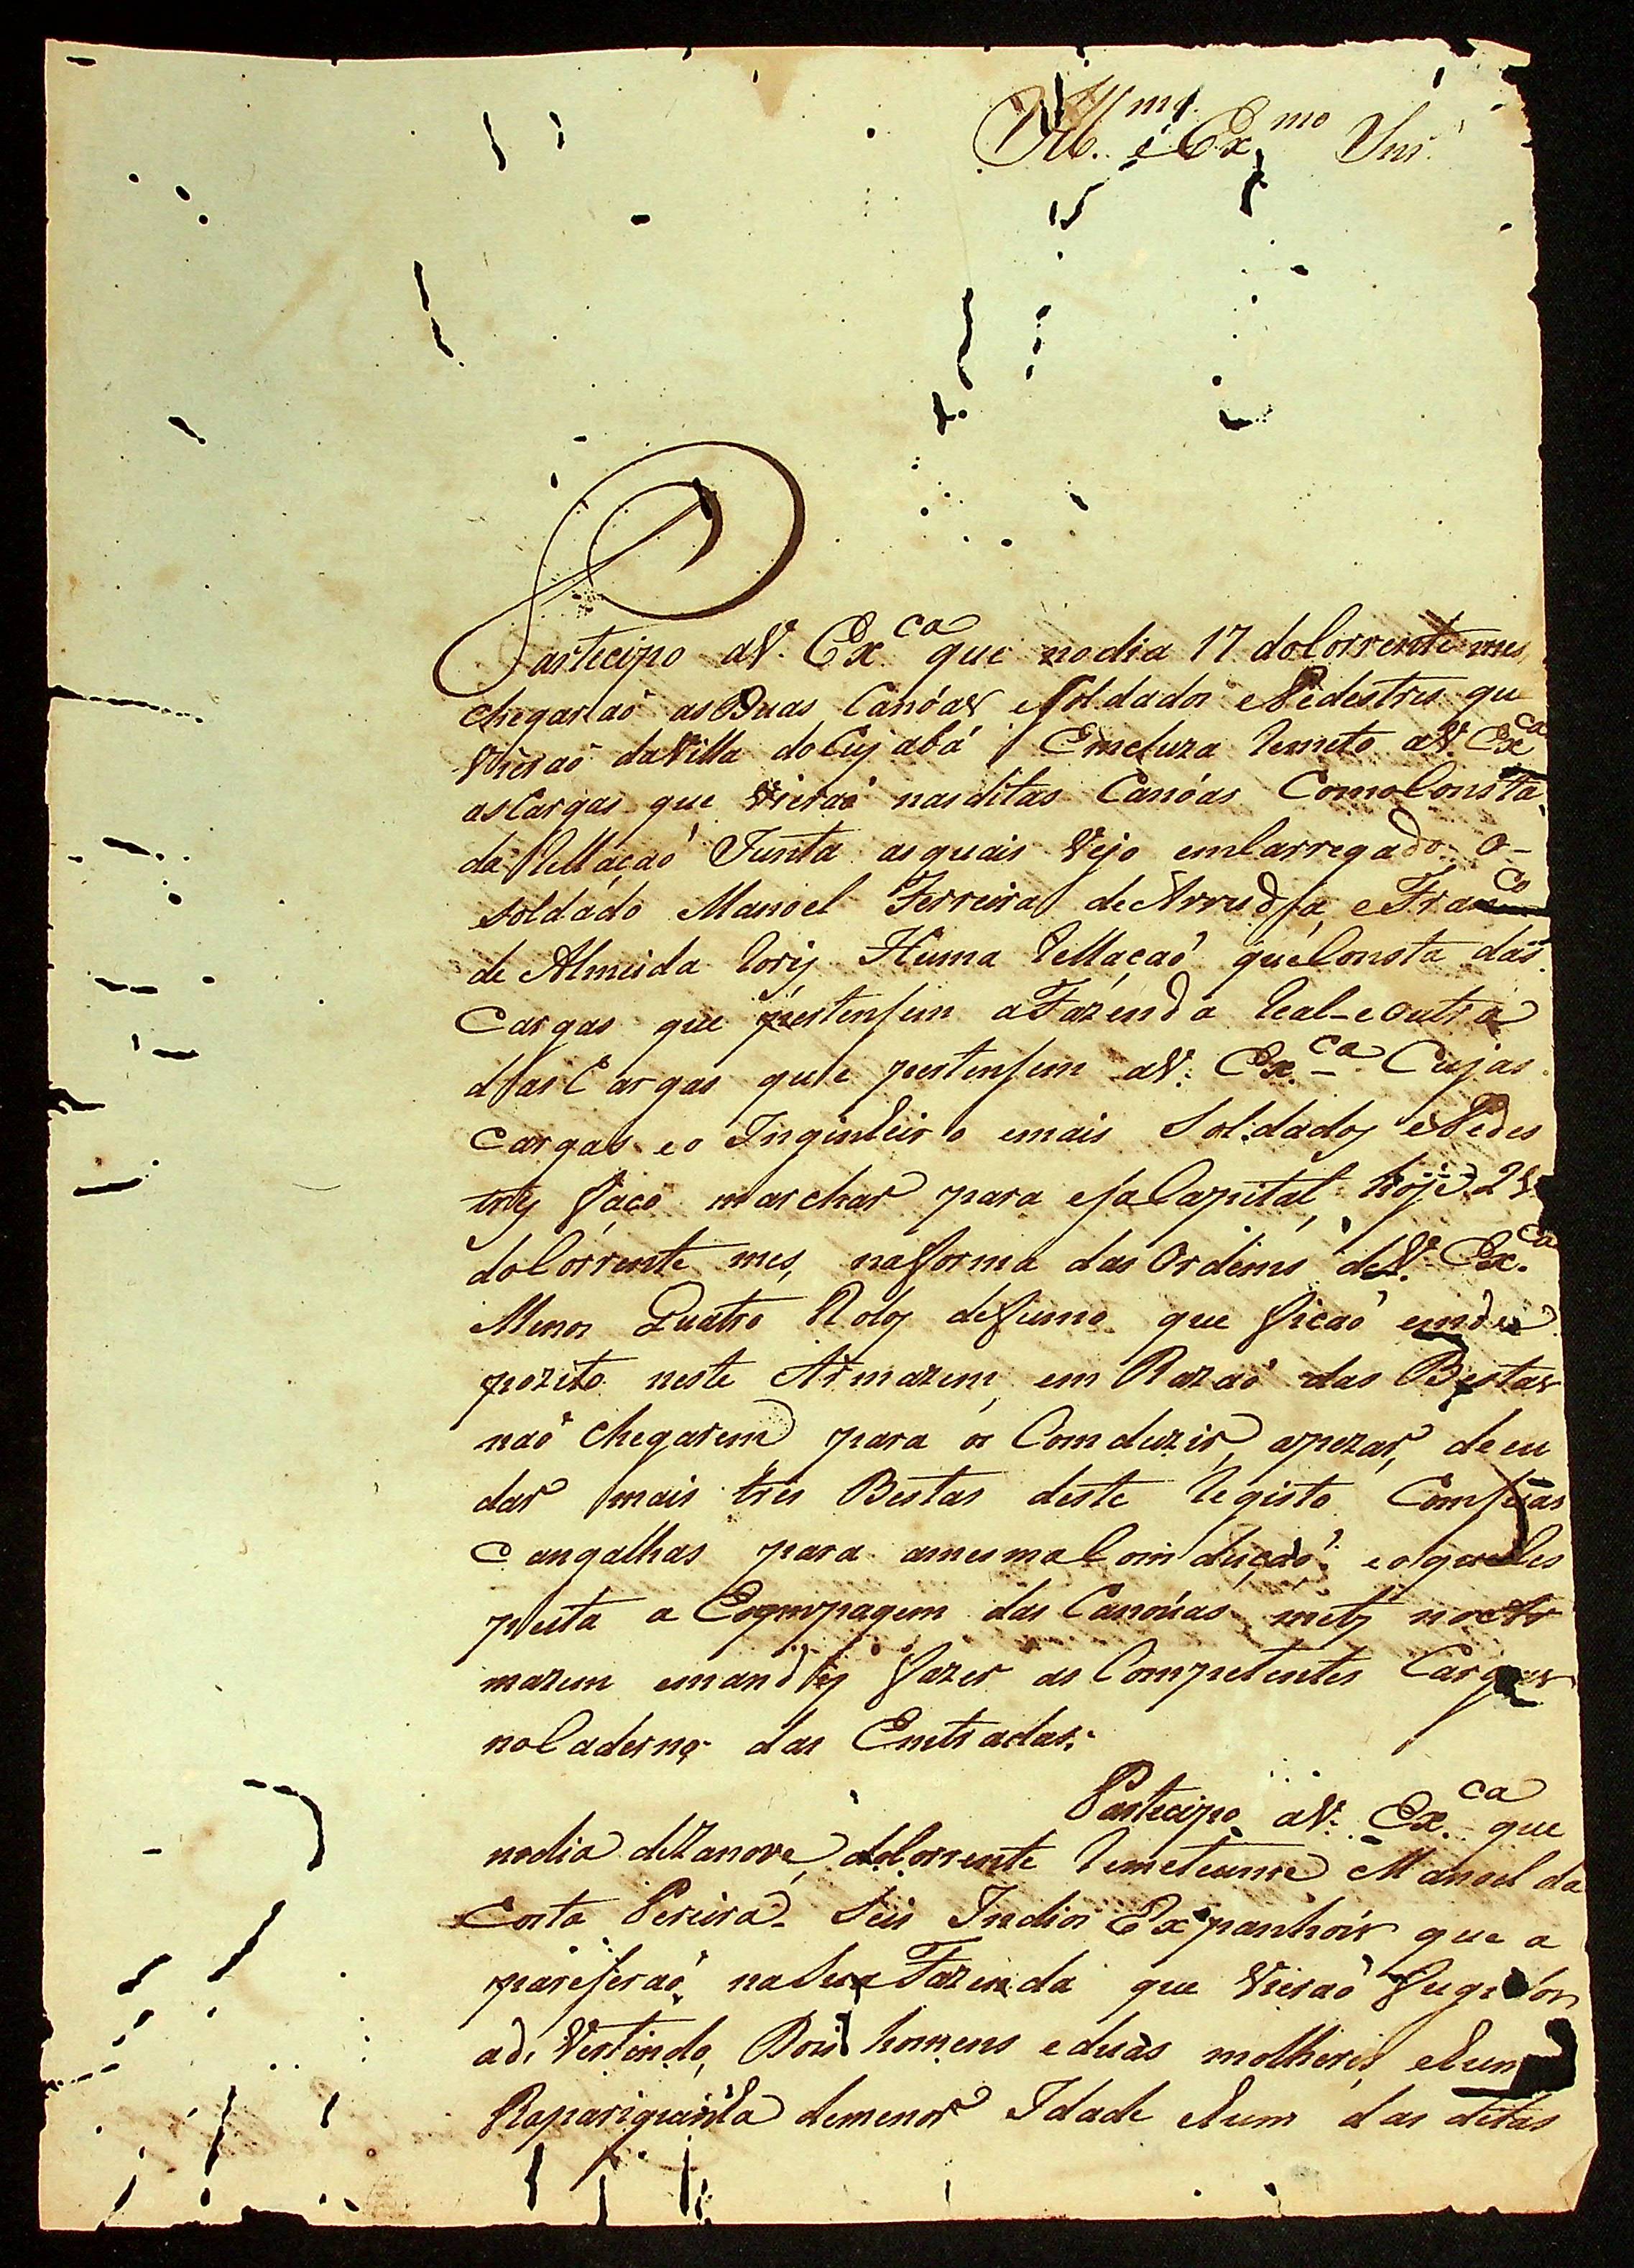 Ill.mo e Ex.mo Snr.
Partecipo aV. Ex.ca que nodia 17 doCorrente mes
chegaraõ asDuas Canóas eSoldados ePedestres que
Vieraõ daVilla doCujabá Emeluza Remeto aV. Exca
asCargas que Vieraõ nasditas Canóas ComoConsta
da Rellaçaõ Junta asquais Vejo emCarregado o
soldado Manoel Ferreira deArruda, eFranco
de Almeida Huma Rellaçaõ queConsta das
Cargas que pertenſem aFazenda Real eoutra
dasCargas que pertenſem aV. Ex.ca Cujas
Cargas eo Inginheiro emais Soldados ePedes
tres faço marchar para eſaCapital, hoje 2
doCorrente mes, naforma das Ordems deV. Ex.ca
Menos Quatro Rolos defumo que ficaõ emde
pozito neste Armazem, em Razaõ das Bestas
naõ chegarem para os Comduzir, apezar, deeu
dar mais tres Bestas deste Registo Comſuas
Cangalhas para amesmaComduçaõ: eoqueRes
peita a Eqquipagem das Canóuas mety noAr
mazem emandey fazer as Competentes Cargas
noCaderno das Emtradas.
Partecipo aV. Ex.ca que
nodia deZanove, doCorrente Remeteume Manoel da
Costa Pereira Seis Indios Expanhois que a
pareſeraõ naSua Fazenda que Vieraõ fugidos
adVertindo, Dois homens eduas molheres, ehuma
Rapariguinha demenor Idade ehum das ditas